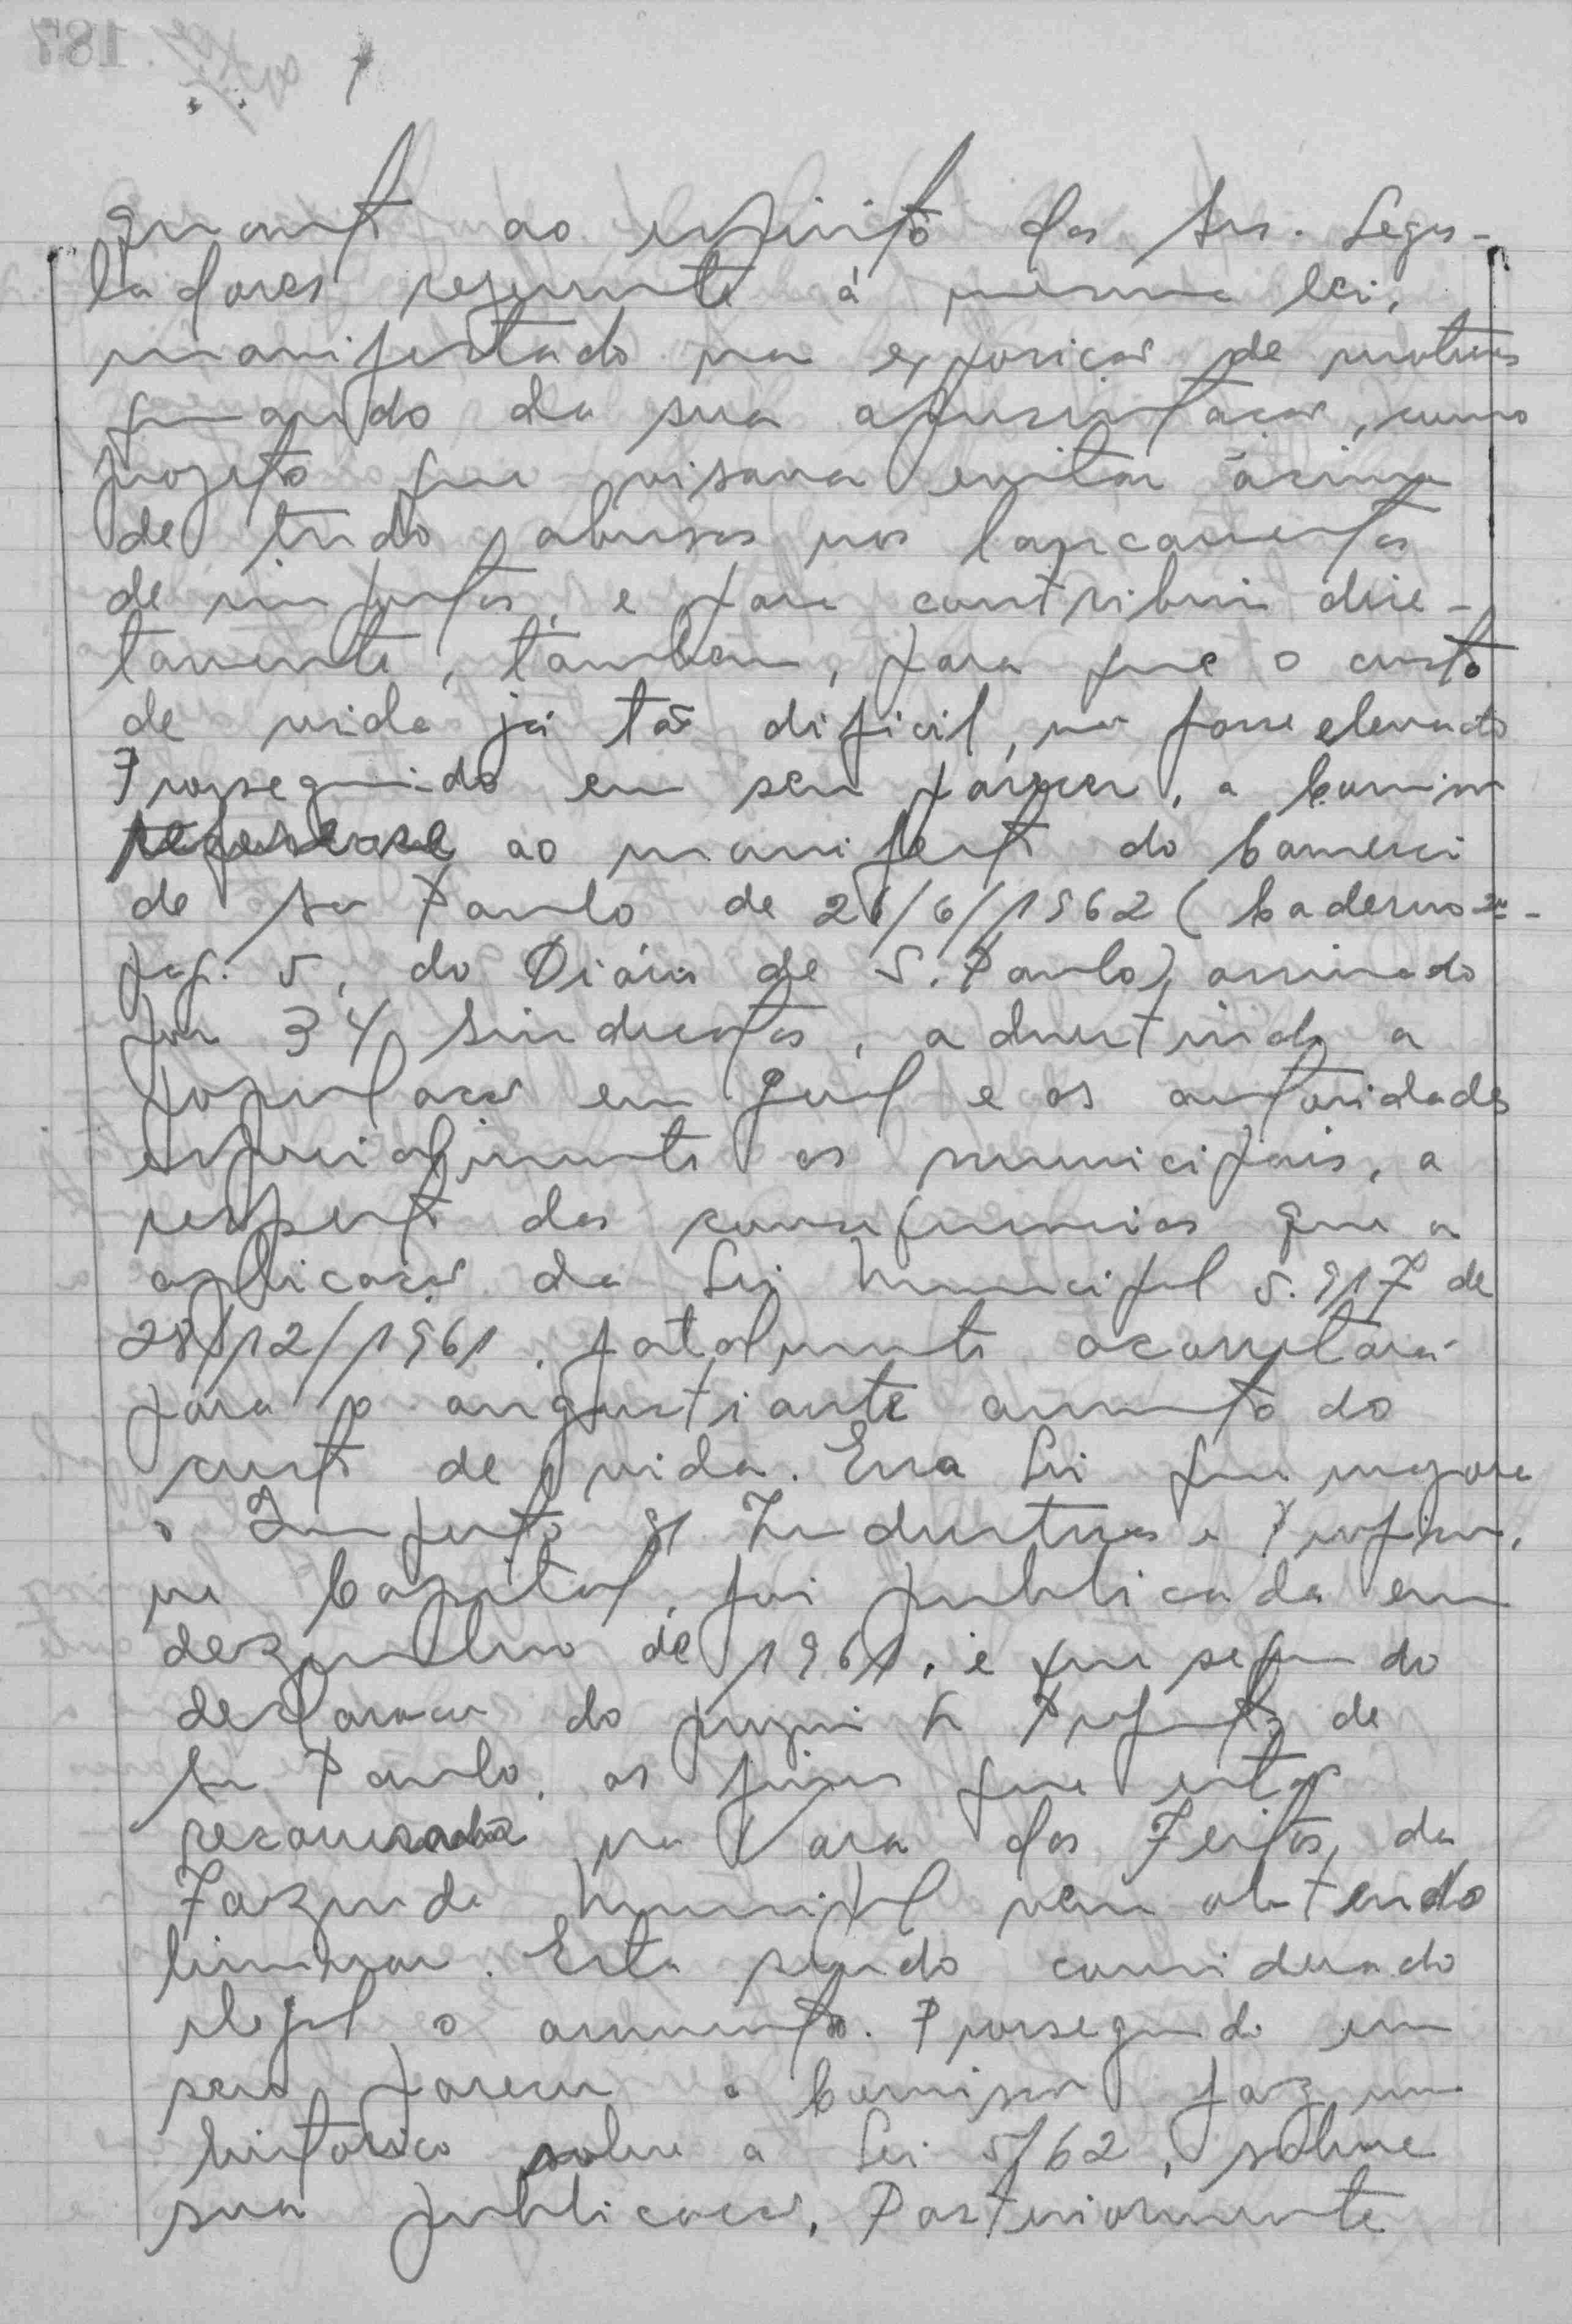 quanto ao espirito dos Srs. Legis-
ladores referente á mesma lei,
manifestado na exposição de motivos
quando da sua apresentação, como
projeto que visava evitar ácima
de tudo, abusos nos lançamentos
de impostos, e para contribuir dire-
tamente, também, para que o custo
de vida já tão dificil, não fosse elevado
Prosseguindo em seu parecer, a Comissão
refere-se ao manifesto do Comercio
de São Paulo de 26/6/1962 (Caderno 2º-
pag. 5, do Diário de S. Paulo), assinado
por 34 Sindicatos, advertindo a
população em geral e as autoridades
especialmente as municipais, a
respeito das consequencias que a
aplicação da Lei Municipal 5.917 de
28/12/1961, fatalmente acarretará
para o angustiante aumento do
custo de vida. Essa Lei que majora
o Imposto s/ Industrias e Profissões,
na Capital, foi publicada em
dezembro de 1961, e que segundo
declaração do proprio Prefeito de
São Paulo, as firmas que estão
na Vara dos Feitos da
Fazenda Municipal vem obtendo
liminar. Esta sendo considerado
ilegal o aumento. Prosseguindo em
seu parecer a Comissão faz um
historico sobre a Lei 5/62, sobre
sua publicação. Posteriormente